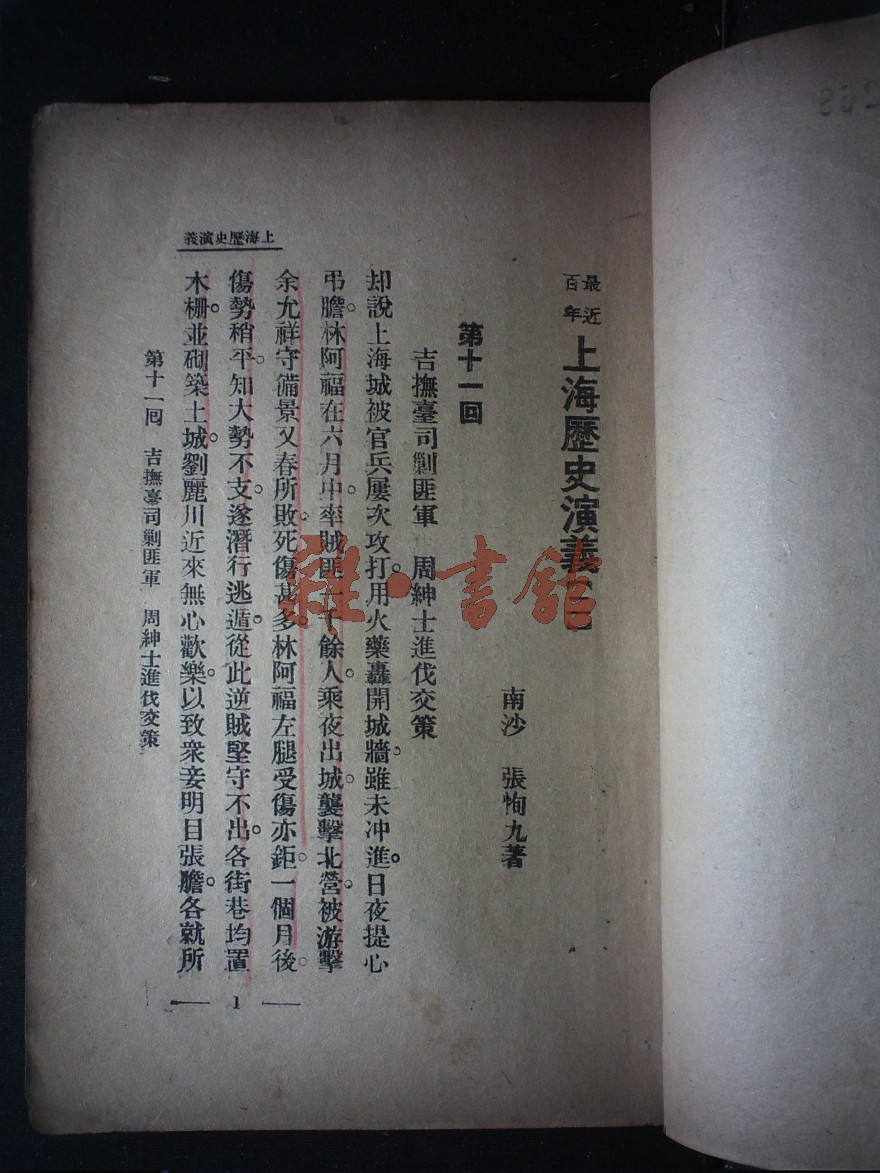 最近百年 上海歷史演義
南沙 張恂九著
第十一回
吉撫臺司剿匪軍 周紳士進伐交策
却說上海城被官兵屢次攻打。用火藥轟開城牆。雖未冲進。日夜提心
弔膽。林阿福在六月中。率賊匪一千餘人。乘夜出城。襲擊北營。被游擊
余允祥守備景又春所敗。死傷甚多。林阿福左腿受傷亦鉅。一個月後。
傷勢稍平。知大勢不支。遂潛行逃遁。從此逆賊堅守不出。各街巷均置
木柵。並砌築土城。劉麗川近來無心歡樂。以致衆妾明目張膽。各就所
上海歷史演義
第十一回 吉撫臺司剿匪軍 周紳士進伐交策
1
雜·書館